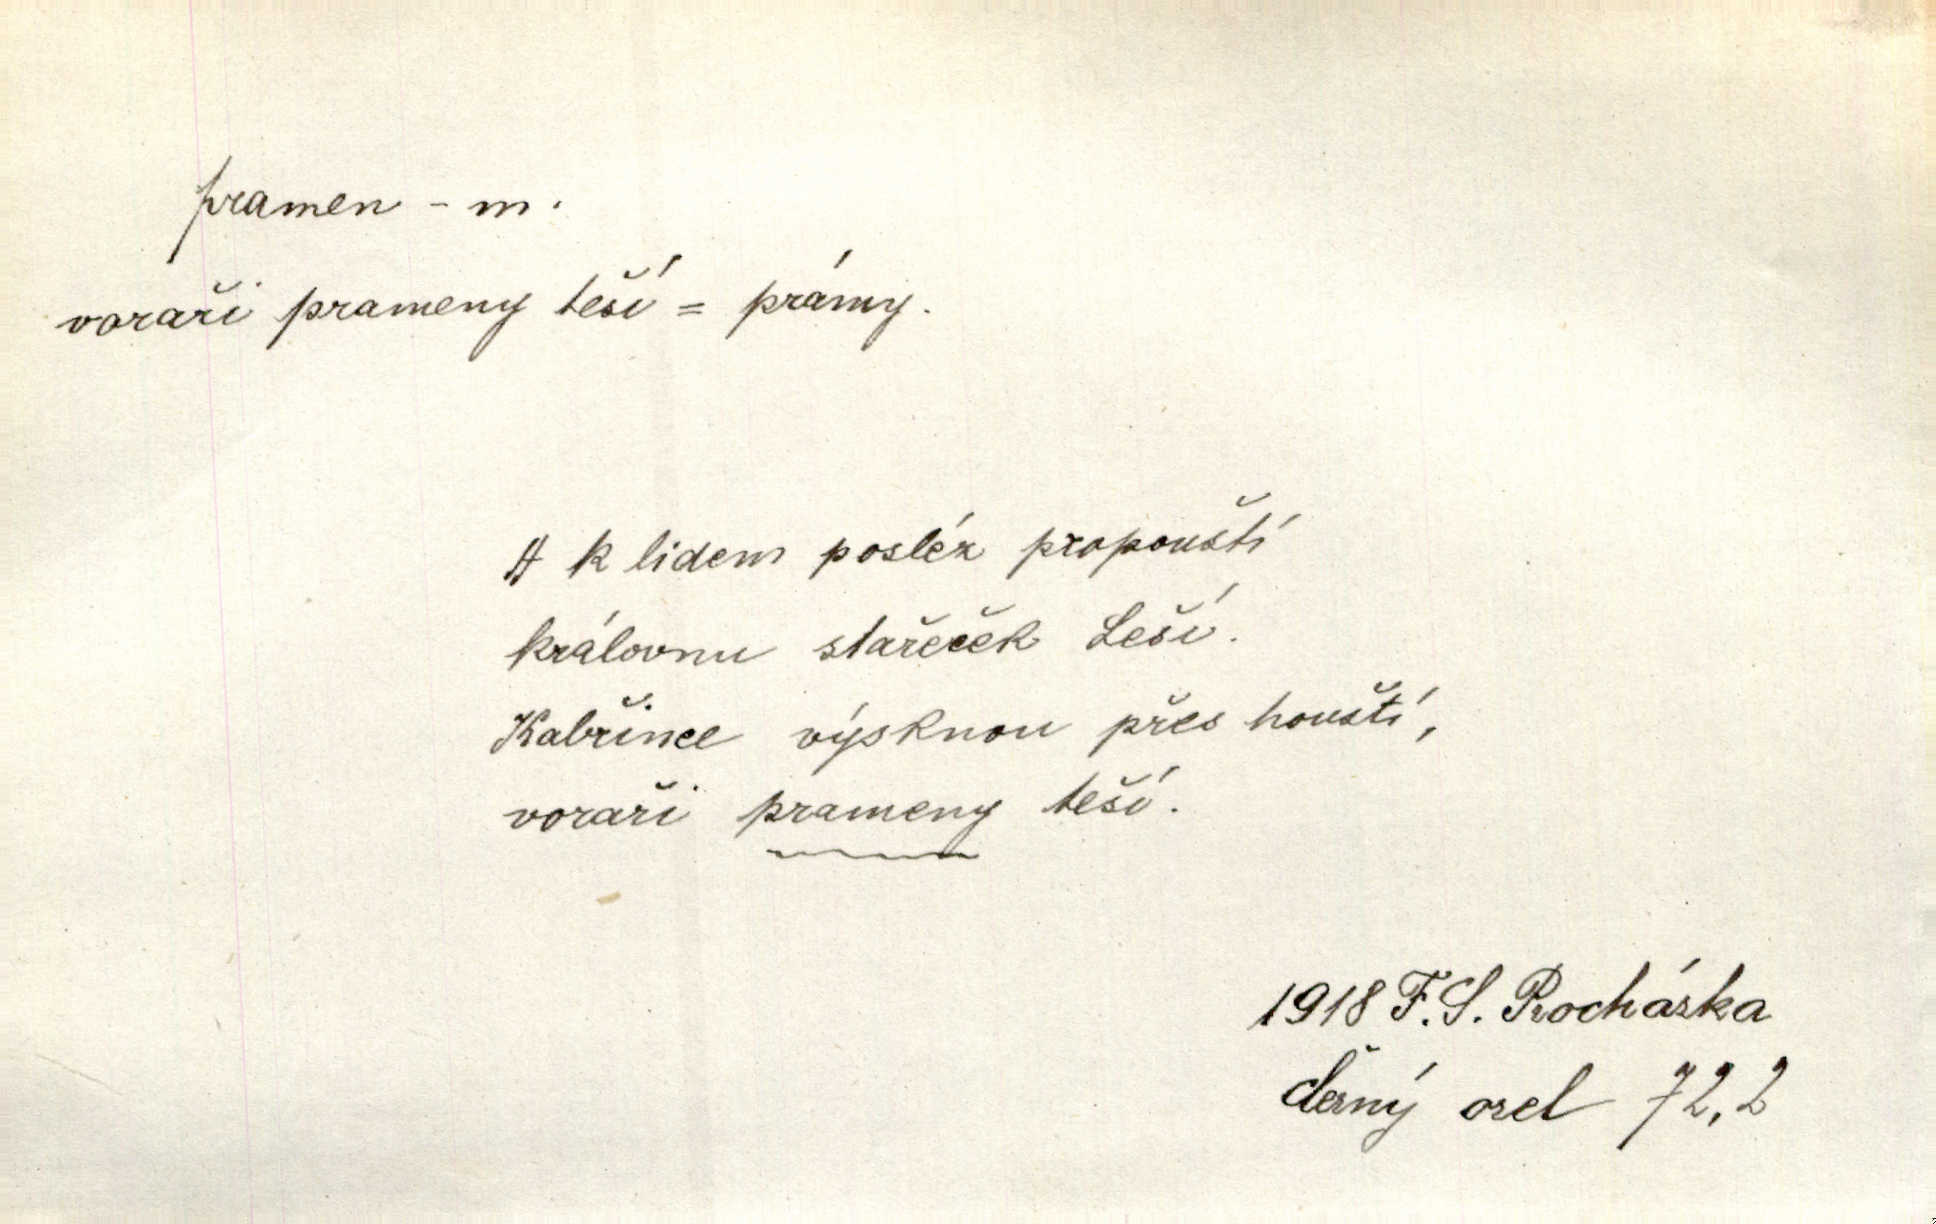 pramen - m.
voraři prameny teší = prámy.
A k lidem posléz propouští
královnu stařeček Leší.
Kabřince výsknou přes houští,
voraři prameny teší.
1918 F. S. Procházka
černý orel 72,2